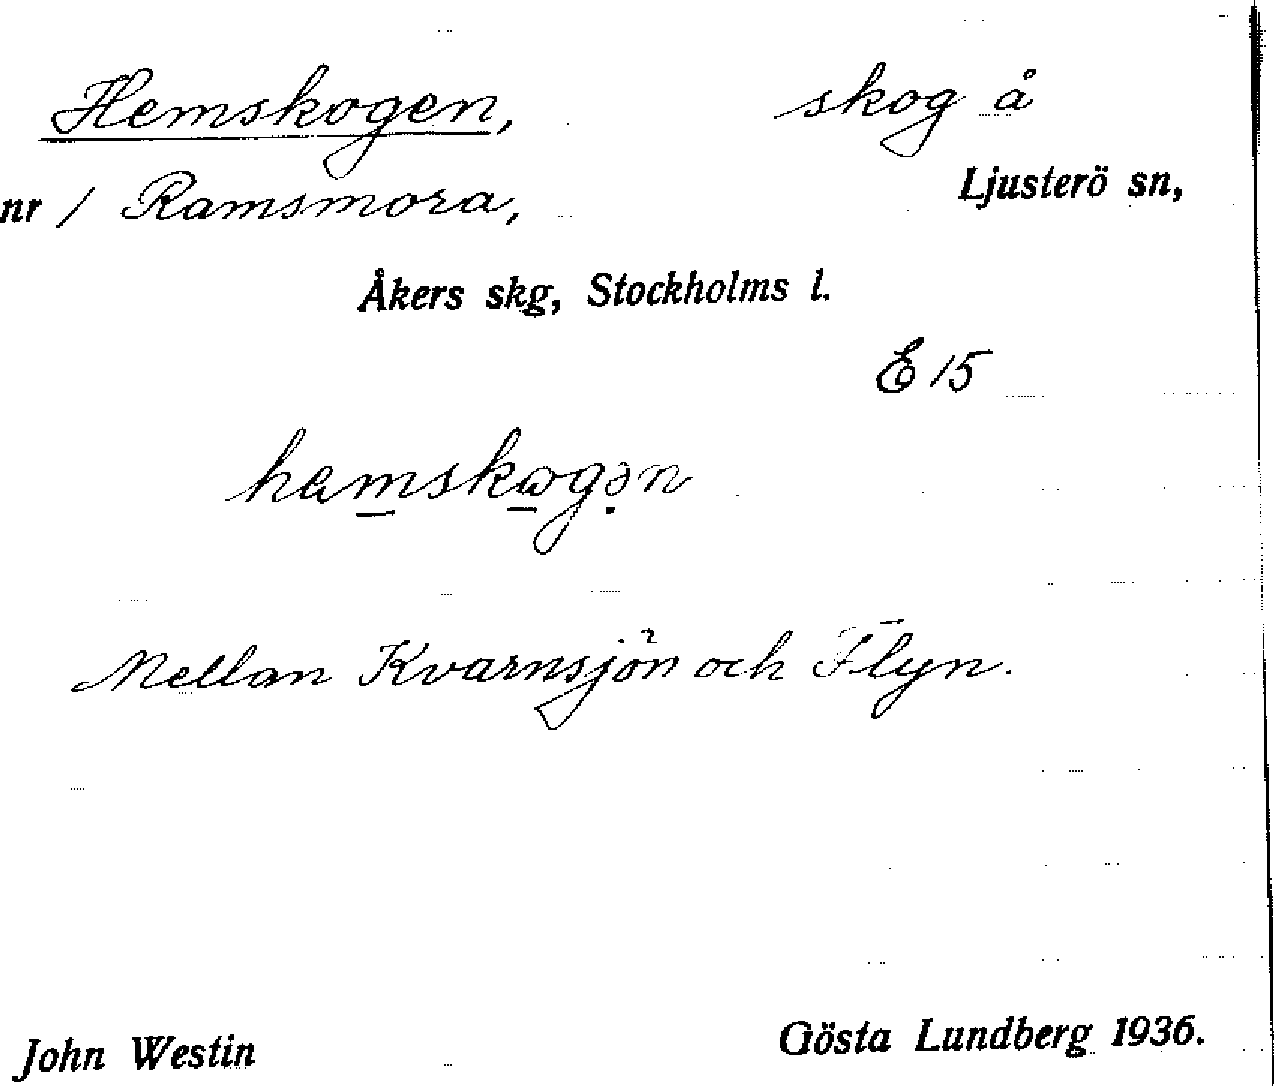 Hemskogen, skog å
Ljusterö sn,
nr 1 Ramsmora,
Åkers skg, Stockholms l.
E 15
hamskogən
Mellan Kvarnsjön och Flyn.
John Westin Gösta Lundberg 1936.